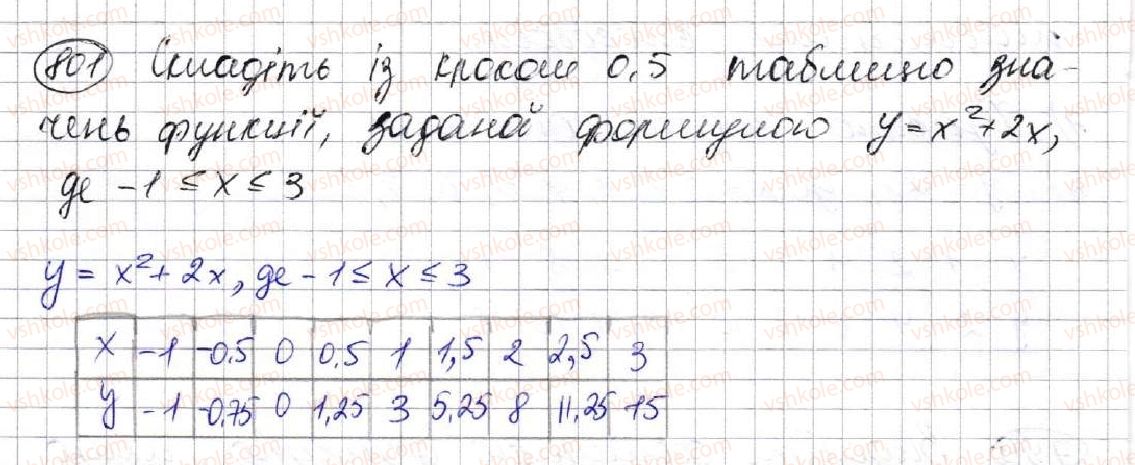 801 Складіть із кроком 0,5 таблицю зна-
чень функції, заданої формулою y=x²+2x,
де -1 ≤ x ≤ 3
y = x²+ 2x, де -1 ≤ x ≤ 3
x -1 -0.5 0 0.5 1 1,5 2 2,5 3
y -1 -0,75 0 1,25 3 5,25 8 11,25 15
vshkole.com